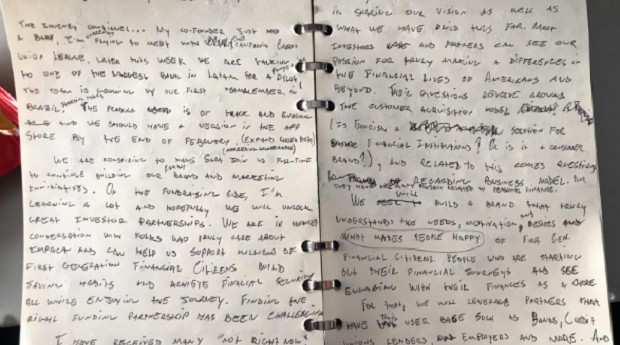 THE JOURNEY CONTINUES... MY CO-FOUNDER JUST HAD
A BABY, I'M FLYING TO MEET WITH CALIFORNIA CREDIT
UNION LEAGUE, LATER THIS WEEK WE ARE TALKING
TO ONE OF THE BIGGEST BANK IN LATAM FOR A PILOT
THE TEAM IS GROWING BY OUR FIRST IN
BRAZIL. THE PRODUCT IS ON TRACK AND
AND WE SHOULD HAVE A VERSION IN THE APP
STORE BY THE END OF FEBRUARY
WE ARE CONSIDERING TO JOIN US FULL-TIME
TO CONTINUE BUILDING OUR BRAND AND MARKETING
INITIATIVES. ON THE FUNDRAISING SIDE, I'M
LEARNING A LOT AND HOPEFULLY WE WILL UNLOCK
GREAT INVESTOR PARTNERSHIPS. WE ARE IN
CONVERSATION WITH FOLKS WHO TRULY CARE ABOUT
IMPACT AND CAN HELP US SUPPORT MILLIONS OF
FIRST GENERATION FINANCIAL CITIZENS BUILD
SAVING HABITS AND ACHIEVE FINANCIAL SECURITY
ALL WHILE ENJOYING THE JOURNEY. FINDING THE
RIGHT FUNDING PARTNERSHIP HAS BEEN CHALLENGING
I HAVE RECEIVED MANY "NOT RIGHT NOW"
IN SHARING OUR VISION AS WELL AS
WHAT WE HAVE BUILD THUS FAR. MOST
INVESTORS AND PARTNERS CAN SEE OUR
PASSION FOR TRULY MAKING A DIFFERENCE IN
THE FINANCIAL LIVES OF AMERICANS AND
BEYOND. THEIR QUESTIONS REVOLVE AROUND
THE CUSTOMER ACQUISITION MODEL
(IS A SOLUTION FOR
FINANCIAL INSTITUTIONS? OR IS IT A CONSUMER
BRAND?), AND RELATED TO THIS COMES QUESTIONS
REGARDING BUSINESS MODEL. FOR
RELATED TO PERSONAL FINANCE.
WE WILL BUILD A BRAND THAT TRULY
UNDERSTANDS THE NEEDS, MOTIVATION, AND DESIRES AND
WHAT MAKES PEOPLE HAPPY OF FIRST GEN
FINANCIAL CITIZENS. PEOPLE WHO ARE STARTING
OUT THEIR FINANCIAL JOURNEYS AND SEE
ENGAGING WITH THEIR FINANCES AS A CHORE
FOR THAT, WE WILL LEVERAGE PARTNERS THAT
HAVE THIS USER BASE SUCH AS BANKS, CREDIT
UNIONS, LENDERS, EMPLOYERS AND MORE. AND